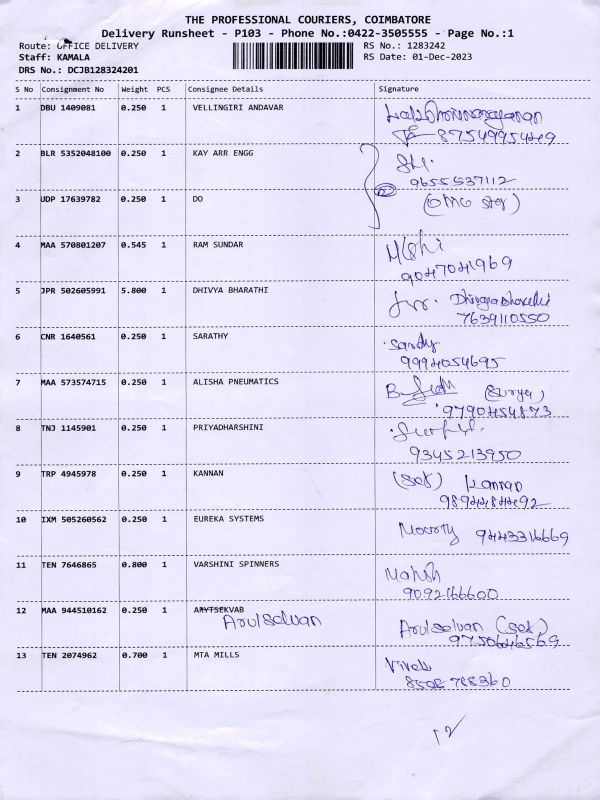 THE PROFESSIONAL COURIERS, COIMBATORE
Delivery Runsheet - P103 - Phone No.:0422-3505555 - Page No.:1
Route: OFFICE DELIVERY RS No.: 1283242
Staff: KAMALA RS Date: 01-Dec-2023
DRS No.: DCJB128324201
S No Consignment No Weight PCS Consignee Details Signature
1 DBU 1409081 0.250 1 VELLINGIRI ANDAVAR
8754995449
2 BLR 5352048100 0.250 1 KAY ARR ENGG
9655537112
3 UDP 17639782 0.250 1 DO
4 MAA 570801207 0.545 1 RAM SUNDAR
9047041969
5 JPR 502605991 5.800 1 DHIVYA BHARATHI
7639110550
6 CNR 1640561 0.250 1 SARATHY Sandy
9994054695
7 MAA 573574715 0.250 1 ALISHA PNEUMATICS (Surya)
9790454873
8 TNJ 1145901 0.250 1 PRIYADHARSHINI
9345213950
9 TRP 4945978 0.250 1 KANNAN (Self) Kannan
9894484492
10 IXM 505260562 0.250 1 EUREKA SYSTEMS Moorty 9443316669
11 TEN 7646865 0.800 1 VARSHINI SPINNERS
9092166600
12 MAA 944510162 0.250 1 ARYTSEKVAB
Arulselvan Arulselvan (Self)
9750646569
13 TEN 2074962 0.700 1 MTA MILLS Vivek
8508788360